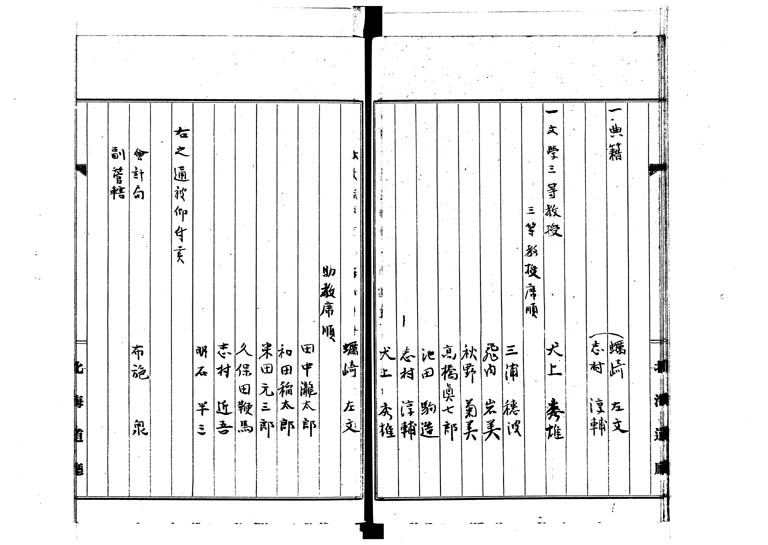 一 典籍
蠣崎 左文
志村 淳輔
一 文学三等教授
犬上 秀雄
三等教授席順
三浦 穂波
飛内 岩美
秋野 菊美
高橋奥七郎
池田 駒造
志村 淳輔
犬上 秀雄
蠣崎 左文
助教席順
田中瀧太郎
和田稲太郎
米田元三郎
久保田鞭馬
志村 近吾
明石 半三
右之通被仰付
会計局
副管轄
布施 泉
北海道庁